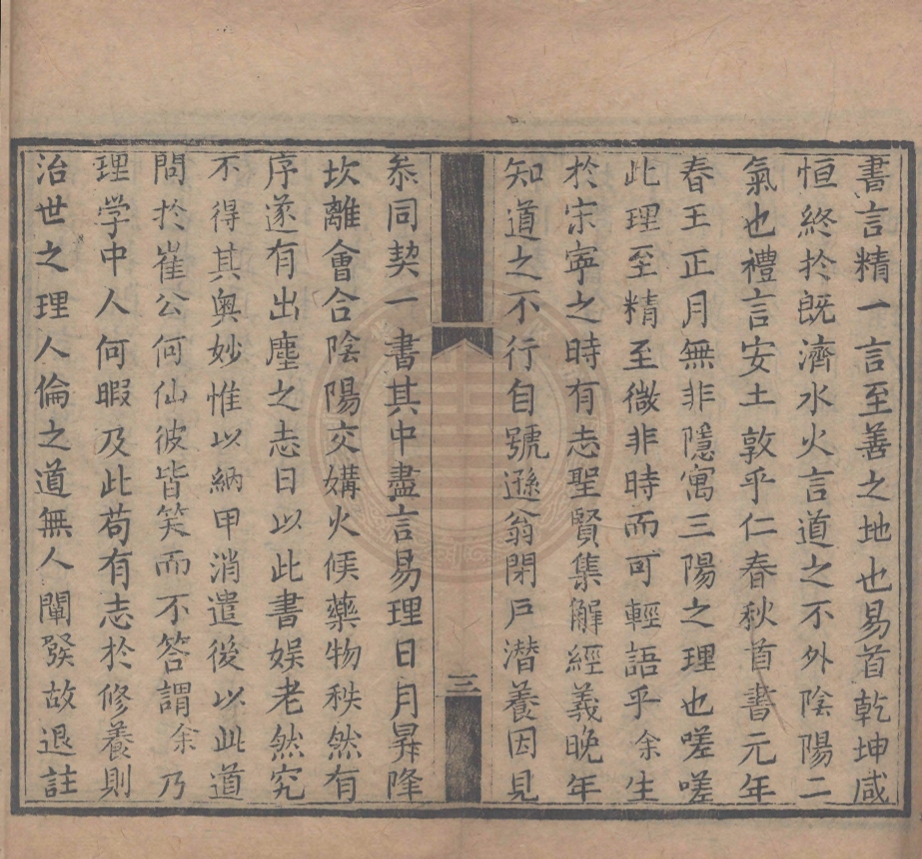 書言精一言至善之地也易首乾坤咸
恒終於旣濟水火言道之不外陰陽二
氣也禮言安土敦乎仁春秋首書元年
春王正月無非隱寓三陽之理也嗟嗟
此理至精至微非時而可輕語乎余生
於宋寧之時有志聖賢集解經義晚年
知道之不行自號遯翁閉戶潛養因見
三
叅同契一書其中盡言易理日月昇降
坎離會合陰陽交媾火候藥物秩然有
序遂有出塵之志日以此書娱老然究
不得其奥妙惟以納甲消遣後以此道
問於崔公何仙彼皆笑而不答謂余乃
理學中人何暇及此苟有志於修養則
治世之理人倫之道無人闡發故退註